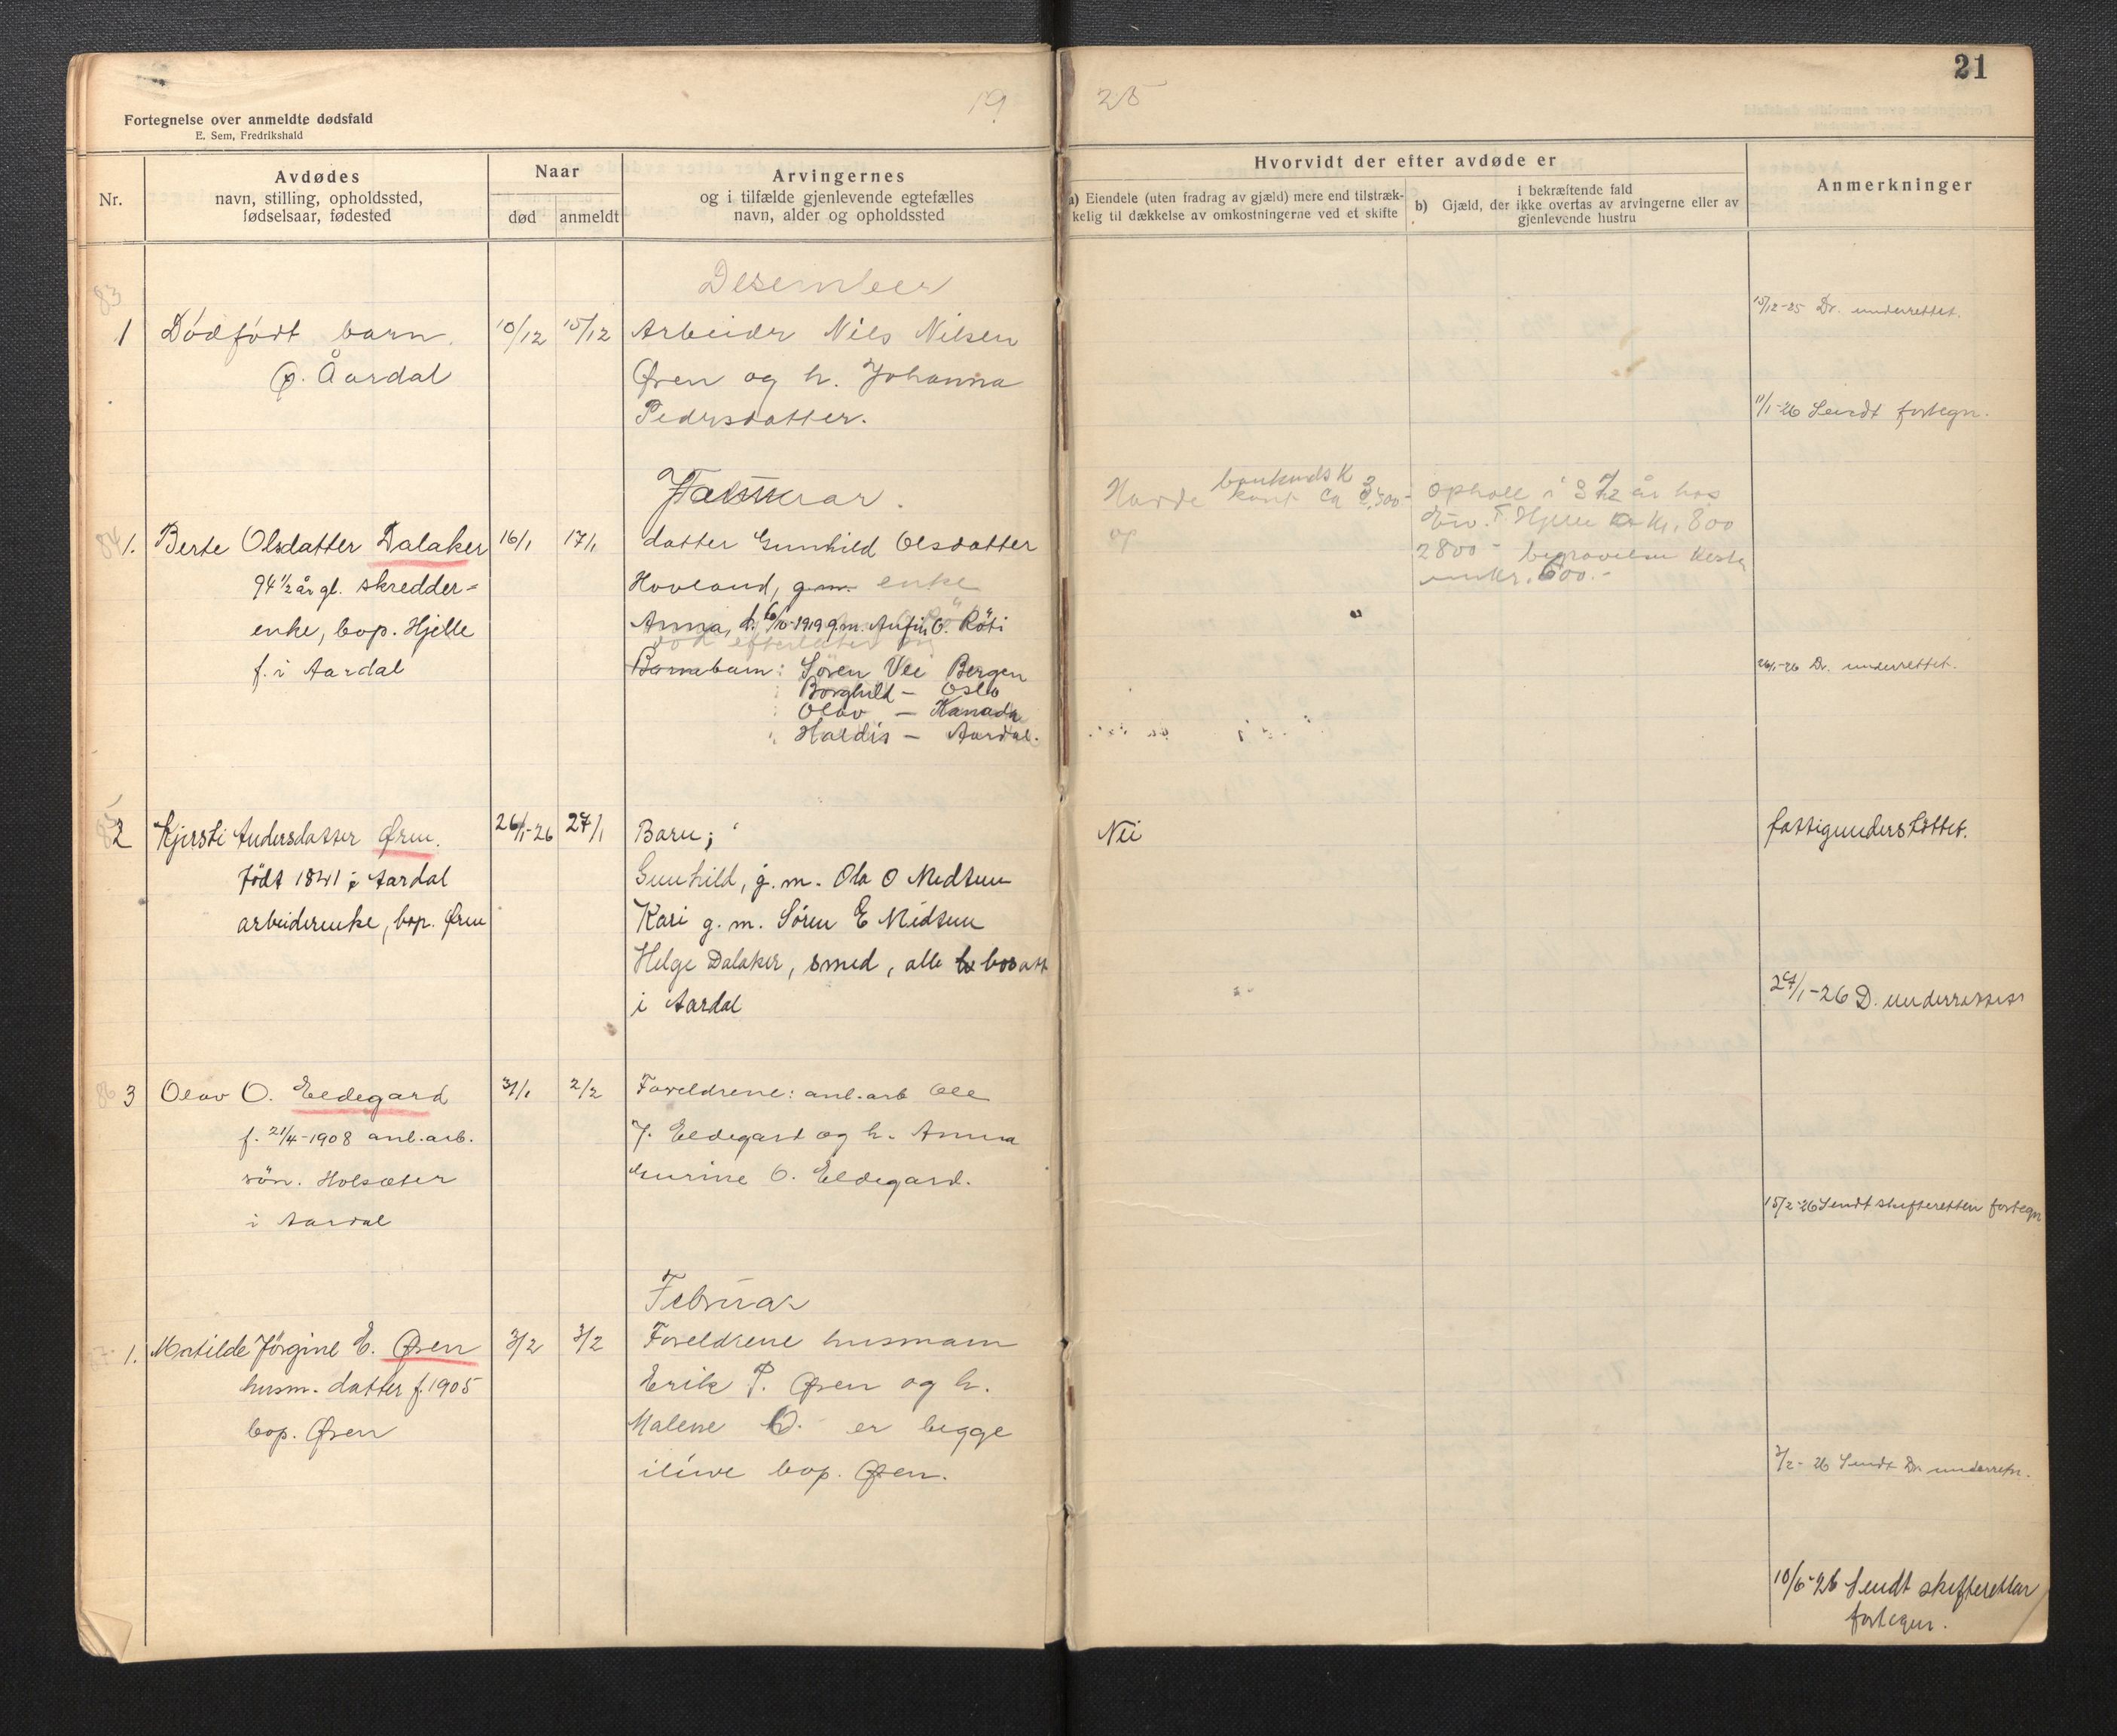 21
19
25
Fortegnelse over anmeldte dødsfald
E. Sem, Fredrikshald
Nr.
Avdødes
navn, stilling, opholdssted,
fødselsaar, fødested
Naar
død
anmeldt
Arvingernes
og i tilfælde gjenlevende egtefælles
navn, alder og opholdssted
Hvorvidt der efter avdøde er
a) Eiendele (uten fradrag av gjæld) mere end tilstræk-
kelig til dækkelse av omkostningerne ved et skifte
i bekræftende fald
b) Gjæld, der ikke overtas av arvingerne eller av
gjenlevende hustru
Anmerkninger
Desember
83
1 Dödfödt barn. 10/12 15/12 Arbeidr Nils Nilsen
Ø. Årdal Øren og h. Johanna
Pedrsdatter.
15/12-25 Dr. underrettet.
11/1-26 Sendt fortegn.
Januar.
84 1. Berte Olsdatter Dalaker 16/1 17/1 datter Gunhild Olsdatter
94 1/2 år gl. skredder-
enke, bop. Hjelle
f. i Aardal
Hovland, g.m. enke
Anna, d. 6/10-1919 g.m. Anfin O. Röti
Barnebarn: Sören Vee Bergen
Borghild - Oslo
Olav - Kanada
Haldis - Aardal.
Havde bankinds K
ca
ophold i 3 1/2 år hos
Hjelle Kr. 800
2800 - begravelse
600.-
26/1-26 Dr. underrettet.
2 Kjersti Andersdatter Øren. 26/1-26 27/1 Barn;
født 1841 i Aardal
arbeiderenke, bop. Øren
Gunhild, g.m. Ola O Midtun
Kari g.m. Sören E Midtun
Helge Dalaker, smed, alle bosatt
i Aardal
Nei
fattigunderstöttet.
27/1-26 D. underrettet
86 3 Olav O. Eldegard 31/1 2/2 Foreldrene: anl.arb Ole
f. 21/4-1908 anl.arb.
sön. Holsæter
i Aardal
J. Eldegard og h. Anna
Gurine O. Eldegard.
15/2-26 Sendt skifteretten fortegn
Februar
1. Matilde Jörgine E. Øren 3/2 3/2 Foreldrene husmann
husm. datter f. 1905
bop. Øren
Erik P. Øren og h.
Malene O. er begge
ilive bop. Øren.
3/2-26 Sendt Dr. underretn.
10/6-26 Sendt skifteretten
fortegn.